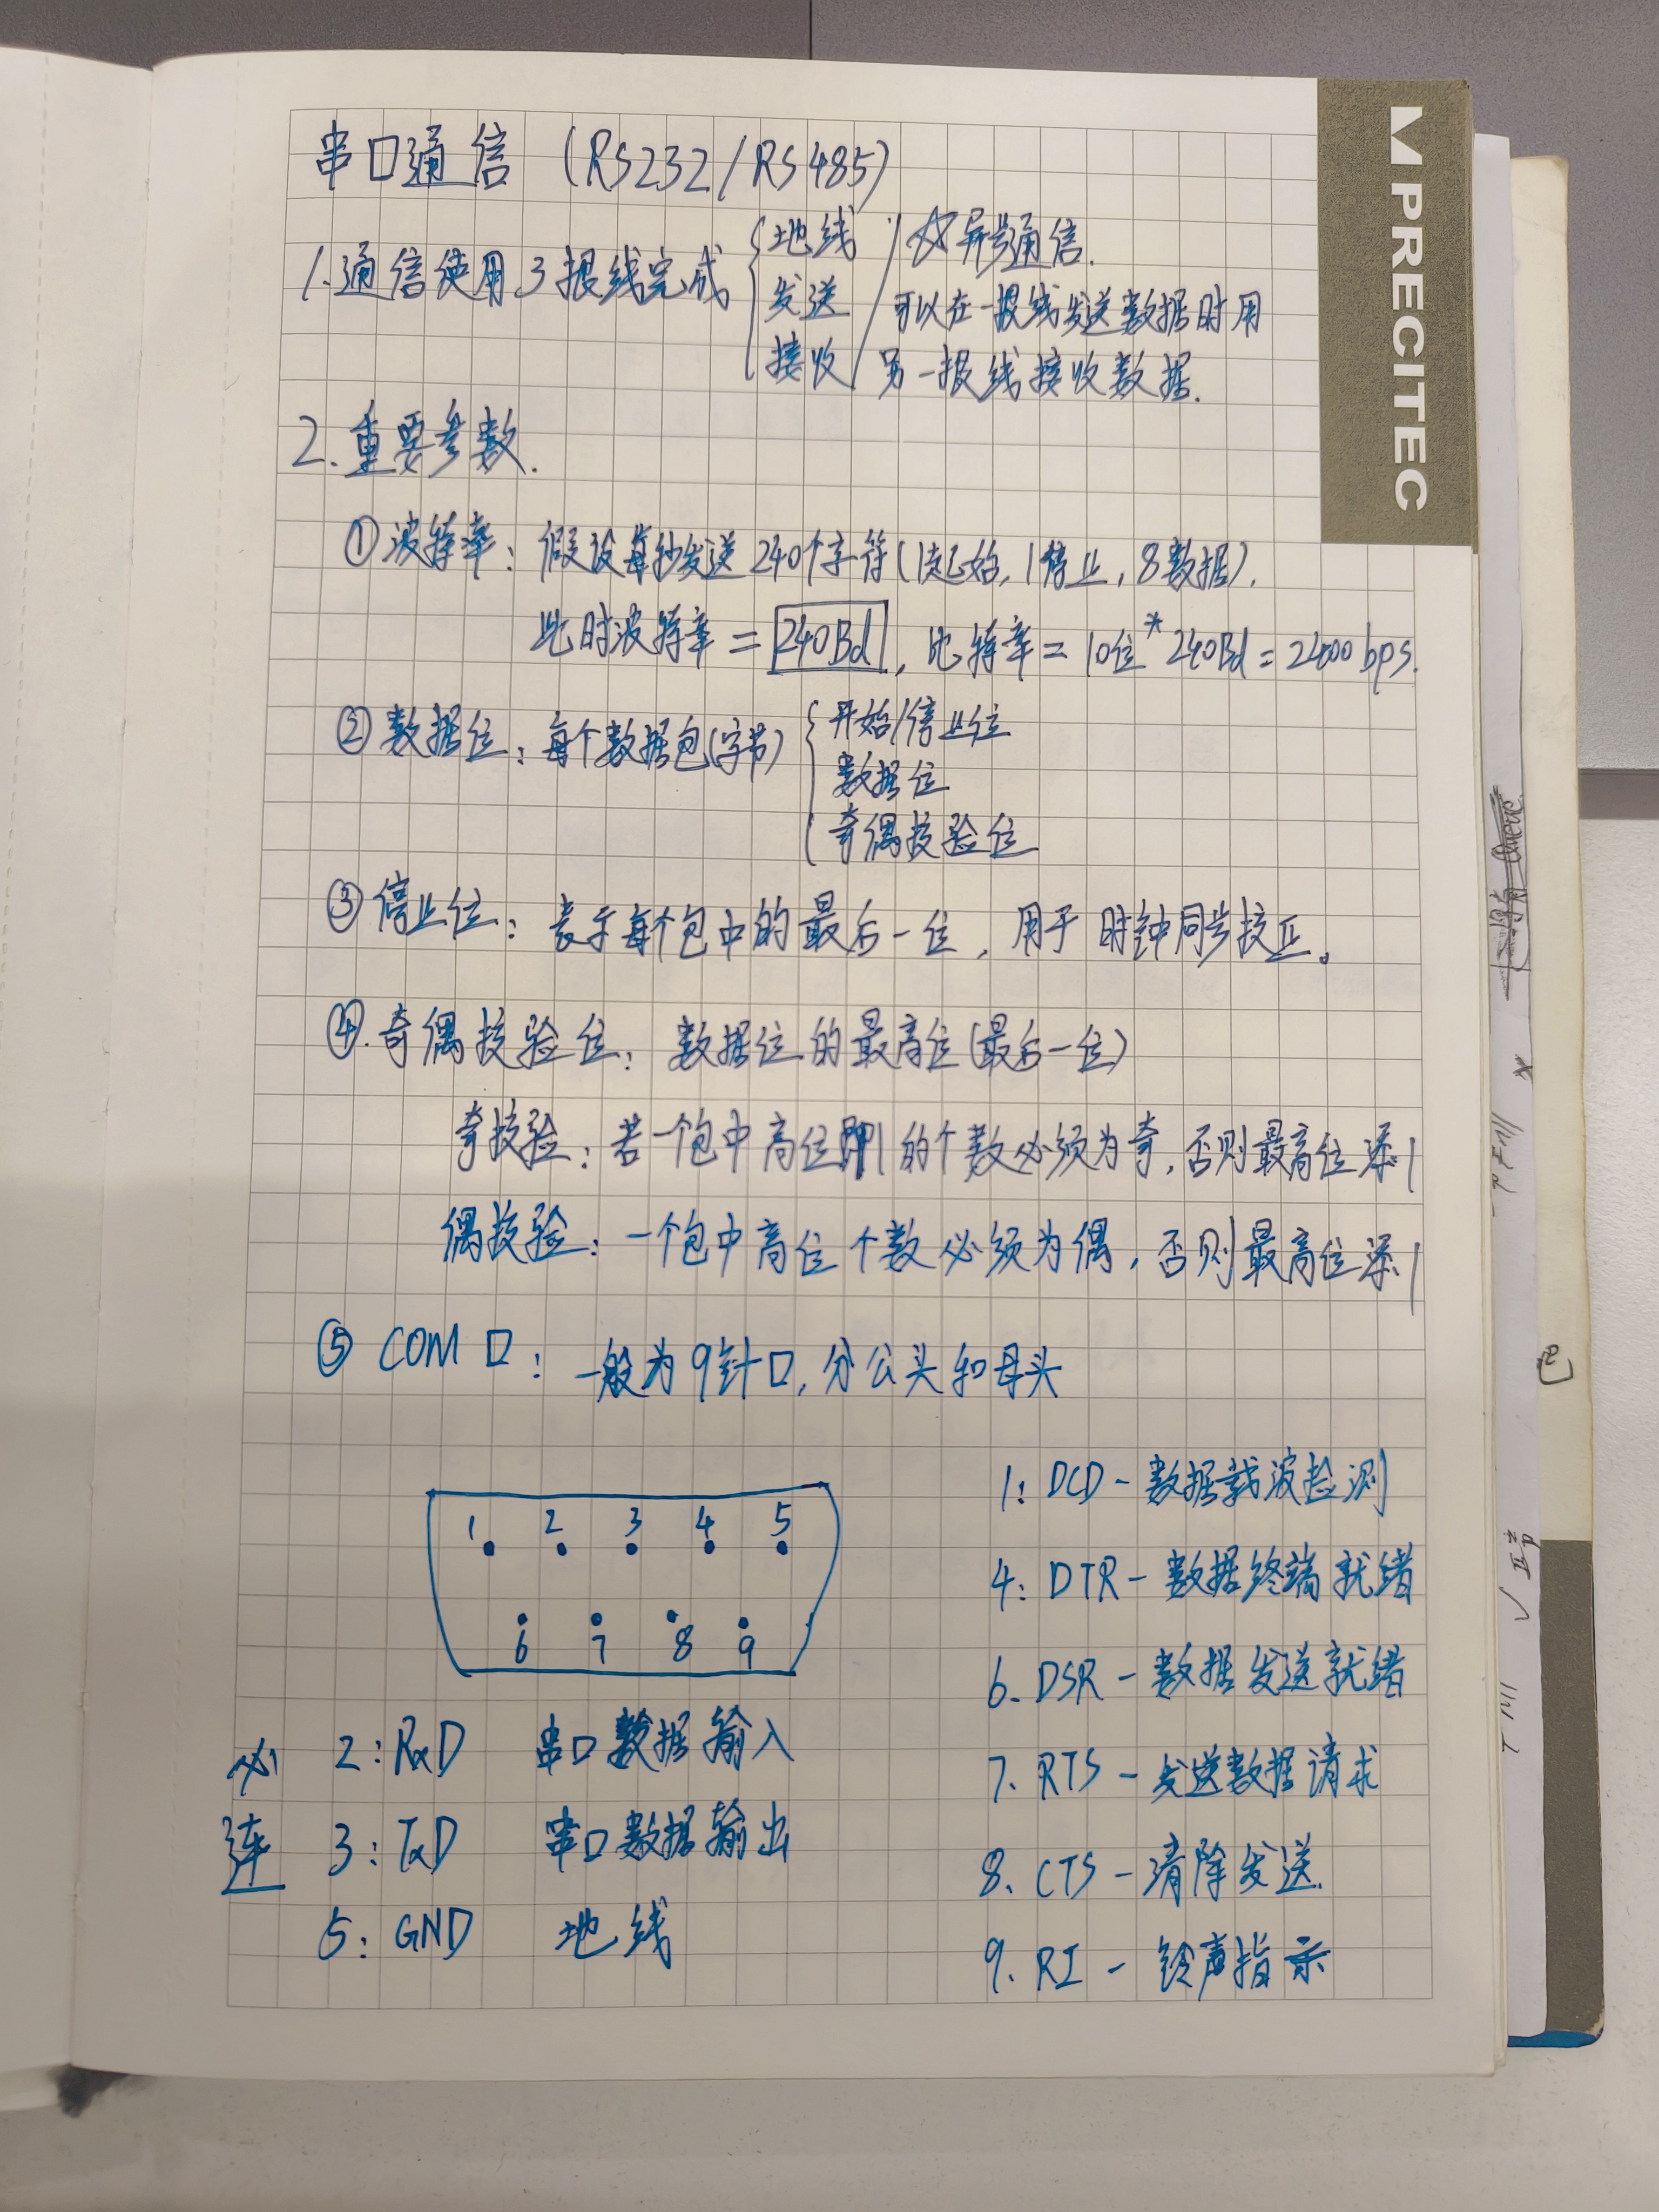 PRECITEC
串口通信 (RS232/RS485)
1.通信使用3根线完成 { 地线 发送 接收 / ☆异步通信.
可以在一根线发送数据时用
另一根线接收数据.
2.重要参数.
①波特率: 假设每秒发送240个字符(1起始,1停止,8数据).
此时波特率=240Bd, 比特率=10位*240Bd=2400bps.
②数据位: 每个数据包(字节) { 开始/停止位
数据位
奇偶校验位
③停止位: 表示每个包中的最后一位, 用于时钟同步校正。
④.奇偶校验位: 数据位的最高位(最后一位)
奇校验: 若一个包中高位即1的个数必须为奇,否则最高位添1
偶校验: 一个包中高位个数必须为偶,否则最高位添1
⑤COM口: 一般为9针口,分公头和母头
1 2 3 4 5
6 7 8 9
必连
2:RxD 串口数据输入
3:TxD 串口数据输出
5:GND 地线
1:DCD-数据载波检测
4:DTR-数据终端就绪
6.DSR-数据发送就绪
7.RTS-发送数据请求
8.CTS-清除发送.
9.RI-铃声指示